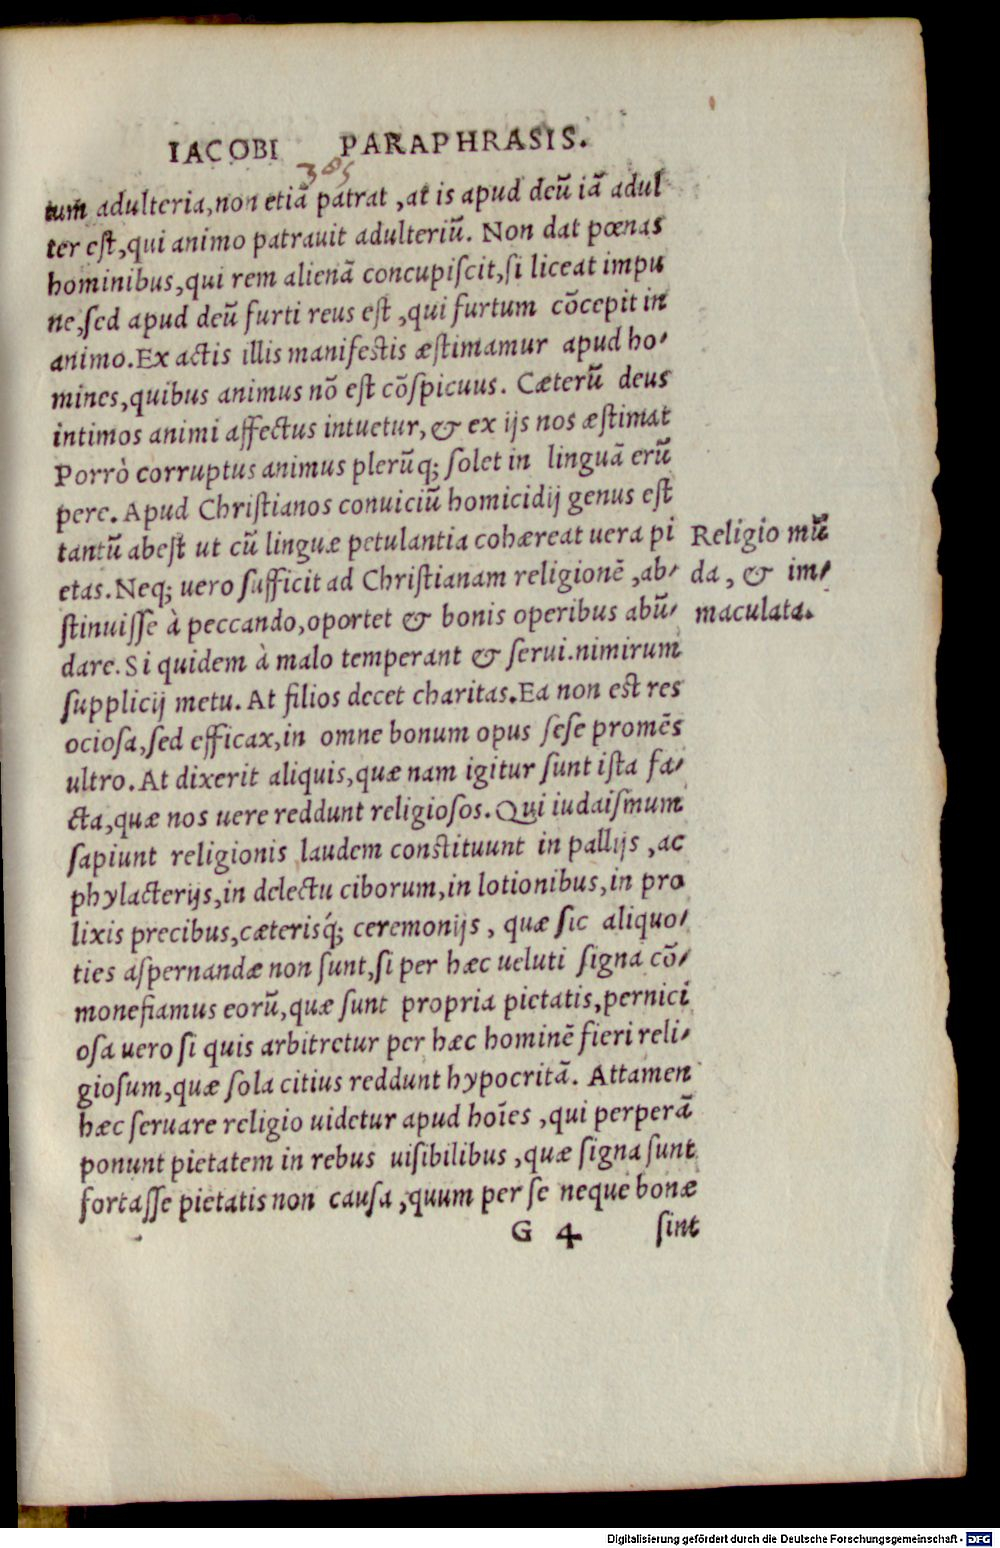 IACOBI PARAPHRASIS.
385
tum adulteria, non etiā patrat, at is apud deū iā adul
ter est, qui animo patrauit adulteriū. Non dat pœnas
hominibus, qui rem alienā concupiscit, si liceat impu
ne, sed apud deū furti reus est, qui furtum cōcepit in
animo. Ex actis illis manifestis æstimamur apud ho-
mines, quibus animus nō est cōspicuus. Cæterū deus
intimos animi affectus intuetur, & ex ijs nos æstimat
Porrò corruptus animus plerūq; solet in linguā erū
pere. Apud Christianos conuiciū homicidij genus est
tantū abest ut cū linguæ petulantia cohæreat uera pi
etas. Neq; uero sufficit ad Christianam religionē, ab-
stinuisse à peccando, oportet & bonis operibus abū-
dare. Si quidem à malo temperant & serui. nimirum
supplicij metu. At filios decet charitas. Ea non est res
ociosa, sed efficax, in omne bonum opus sese promēs
ultro. At dixerit aliquis, quæ nam igitur sunt ista fa-
cta, quæ nos uere reddunt religiosos. Qui iudaismum
sapiunt religionis laudem constituunt in pallijs, ac
phylacterijs, in delectu ciborum, in lotionibus, in pro
lixis precibus, cæterisq́; ceremonijs, quæ sic aliquo-
ties aspernandæ non sunt, si per hæc ueluti signa cō-
monefiamus eorū, quæ sunt propria pietatis, pernici
osa uero si quis arbitretur per hæc hominē fieri reli-
giosum, quæ sola citius reddunt hypocritā. Attamen
hæc seruare religio uidetur apud hoīes, qui perperā
ponunt pietatem in rebus uisibilibus, quæ signa sunt
fortasse pietatis non causa, quum per se neque bonæ
G 4 sint
Religio mū
da, & im-
maculata.
Digitalisierung gefördert durch die Deutsche Forschungsgemeinschaft - DFG